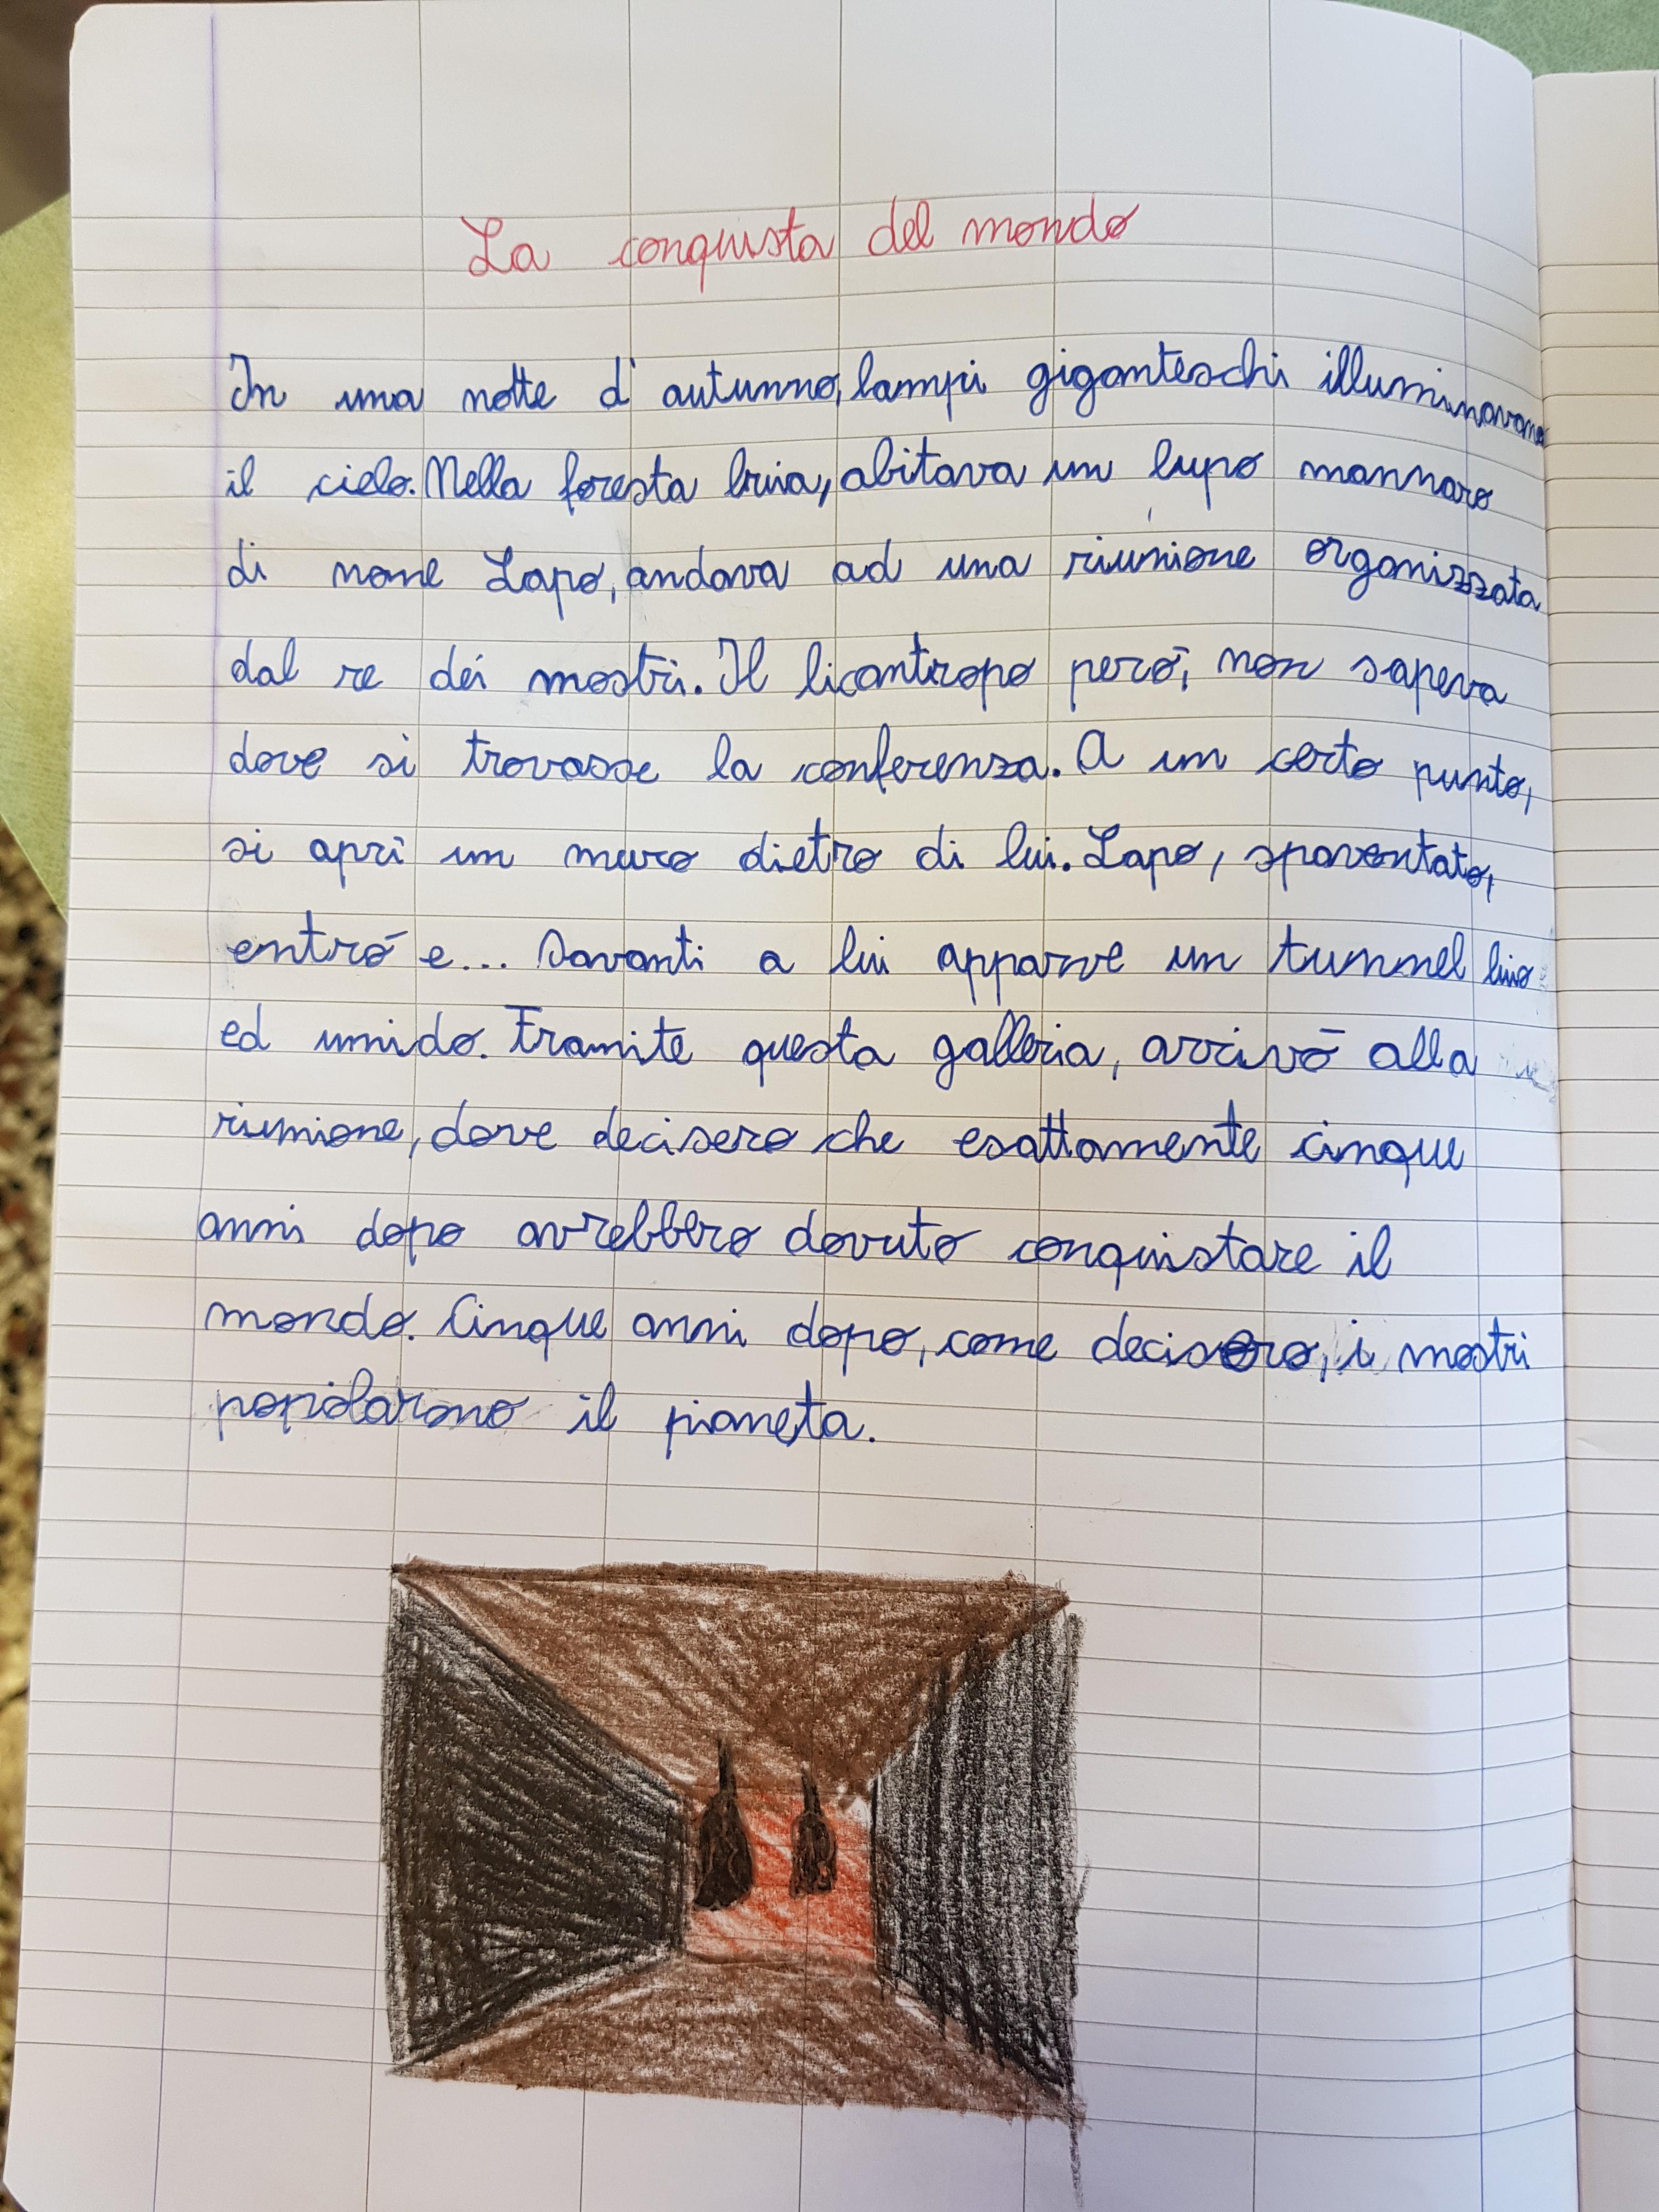 La conquista del mondo
In una notte d'autunno, lampi giganteschi illuminavano
il cielo. Nella foresta buia, abitava un lupo mannaro
di nome Lapo, andava ad una riunione organizzata
dal re dei mostri. Il licantropo però, non sapeva
dove si trovasse la conferenza. A un certo punto,
si aprì un muro dietro di lui. Lapo, spaventato,
entrò e... Davanti a lui apparve un tunnel buio
ed umido. Tramite questa galleria, arrivò alla
riunione, dove decisero che esattamente cinque
anni dopo avrebbero dovuto conquistare il
mondo. Cinque anni dopo, come decisero, i mostri
popolarono il pianeta.